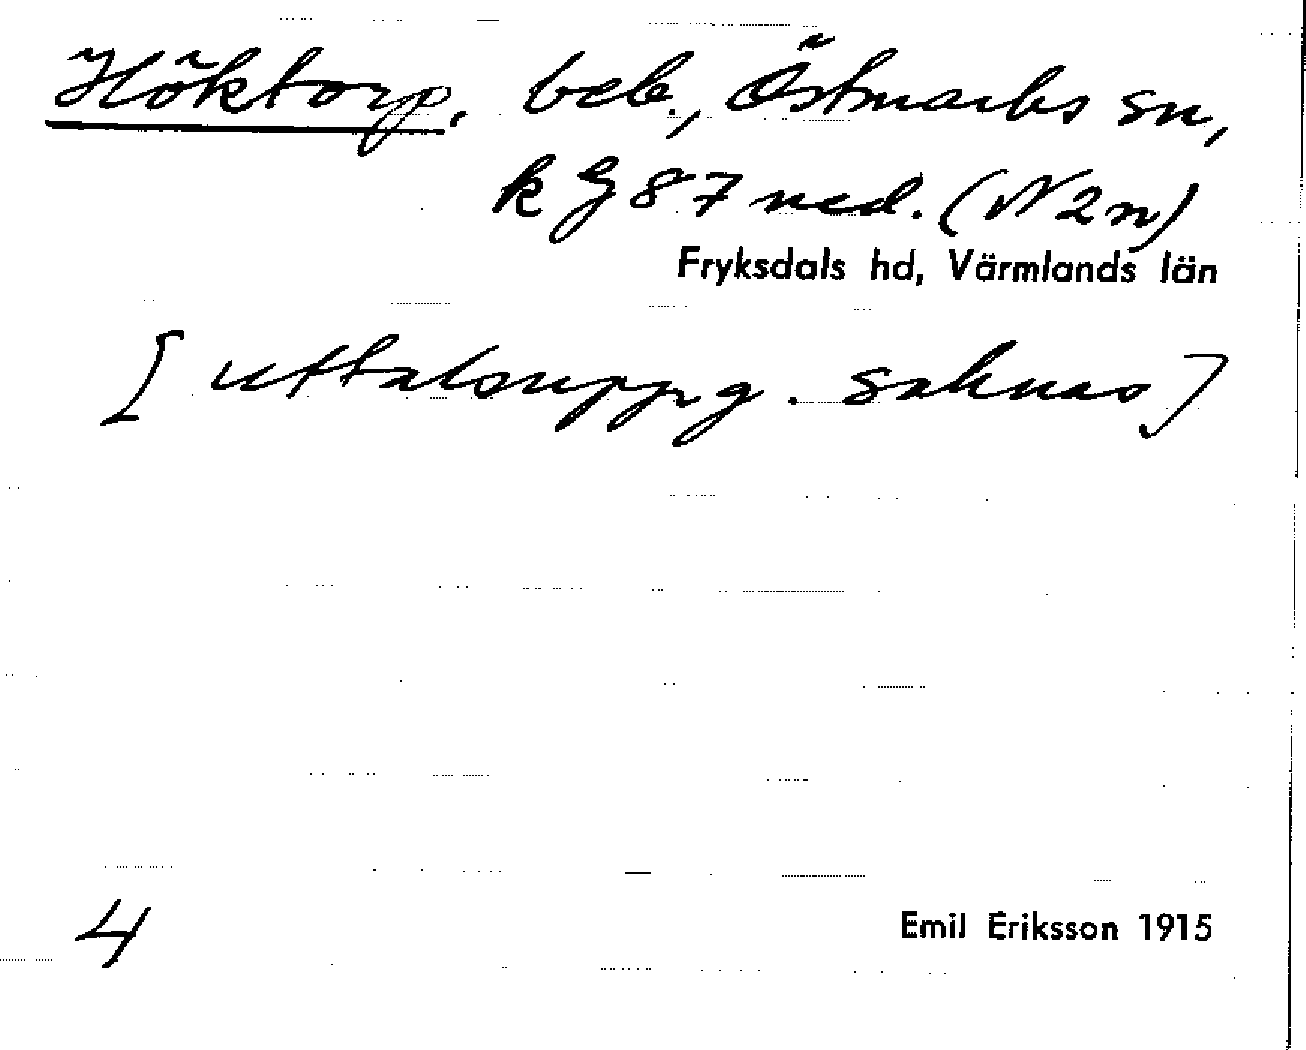 Höktorp, beb., Östmarks sn,
k G 87 ned. (N 2 n)
Fryksdals hd, Värmlands län
[uttalsuppg. saknas]
4
Emil Eriksson 1915